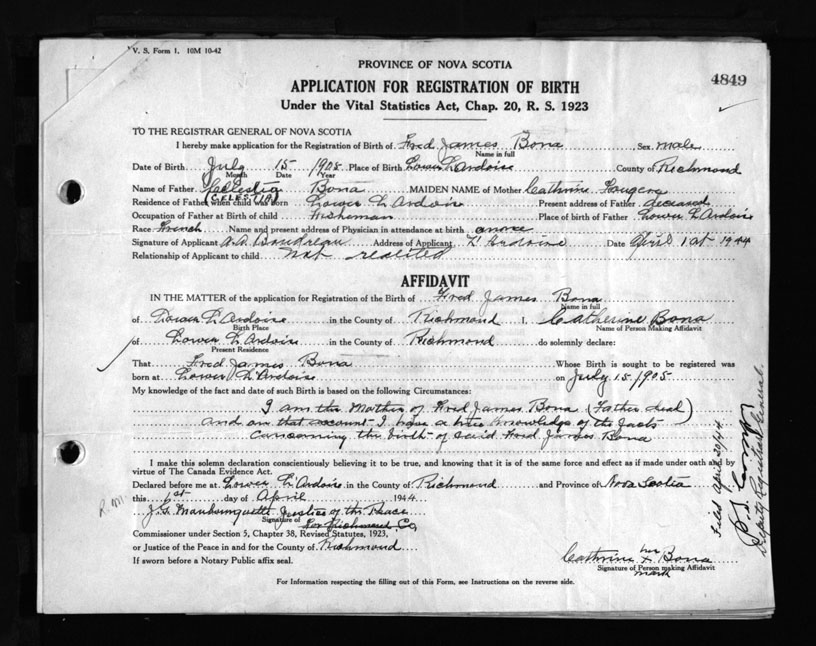 V. S. Form 1. 10M 10-42
PROVINCE OF NOVA SCOTIA
4849
APPLICATION FOR REGISTRATION OF BIRTH
Under the Vital Statistics Act, Chap. 20, R. S. 1923
TO THE REGISTRAR GENERAL OF NOVA SCOTIA
I hereby make application for the Registration of Birth of Fred James Bona Sex male
Name in full
Date of Birth July 15 1905 Place of Birth Lower L'Ardoise County of Richmond
Month Date Year
Name of Father Bona MAIDEN NAME of Mother Cathrine
(CELESTIA)
Residence of Father when child was born Lower L'Ardoise Present address of Father deceased
Occupation of Father at Birth of child Fisherman Place of birth of Father Lower L'Ardoise
Race French Name and present address of Physician in attendance at birth
Signature of Applicant A.A. Boudreau Address of Applicant L'Ardoise Date 1st 1944
Relationship of Applicant to child Not
AFFIDAVIT
IN THE MATTER of the application for Registration of the Birth of Fred James Bona
Name in full
of Lower L'Ardoise in the County of Richmond I, Catherine Bona
Birth Place Name of Person Making Affidavit
of Lower L'Ardoise in the County of Richmond do solemnly declare:
Present Residence
That Fred James Bona Whose Birth is sought to be registered was
born at Lower L'Ardoise on July 15 1905
My knowledge of the fact and date of such Birth is based on the following Circumstances:
I am the Mother of Fred James Bona (Father dead)
and on that account I have a true knowledge of the facts
concerning the birth of said Fred James Bona
I make this solemn declaration conscientiously believing it to be true, and knowing that it is of the same force and effect as if made under oath and by
virtue of The Canada Evidence Act.
Declared before me at Lower L'Ardoise in the County of Richmond and Province of Nova Scotia
R.M. this 1st day of April 1944
Justice of the Peace
Signature of
For Richmond Co,
Commissioner under Section 5, Chapter 38, Revised Statutes, 1923,
or Justice of the Peace in and for the County of Richmond
If sworn before a Notary Public affix seal.
Cathrine her x Bona
Signature of Person making Affidavit
mark
For Information respecting the filling out of this Form, see Instructions on the reverse side.
Filed April 20/44
Deputy Registrar General.